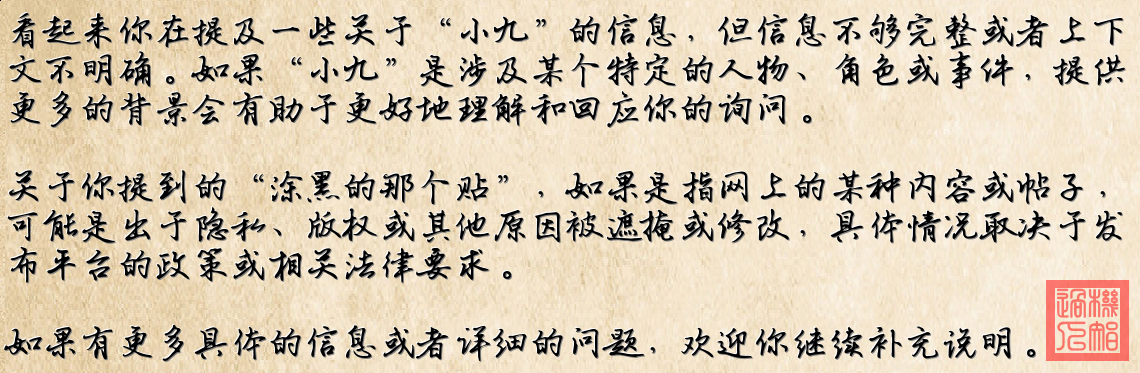 看起来你在提及一些关于“小九”的信息，但信息不够完整或者上下
文不明确。如果“小九”是涉及某个特定的人物、角色或事件，提供
更多的背景会有助于更好地理解和回应你的询问。
关于你提到的“涂黑的那个贴”，如果是指网上的某种内容或帖子，
可能是出于隐私、版权或其他原因被遮掩或修改，具体情况取决于发
布平台的政策或相关法律要求。
如果有更多具体的信息或者详细的问题，欢迎你继续补充说明。